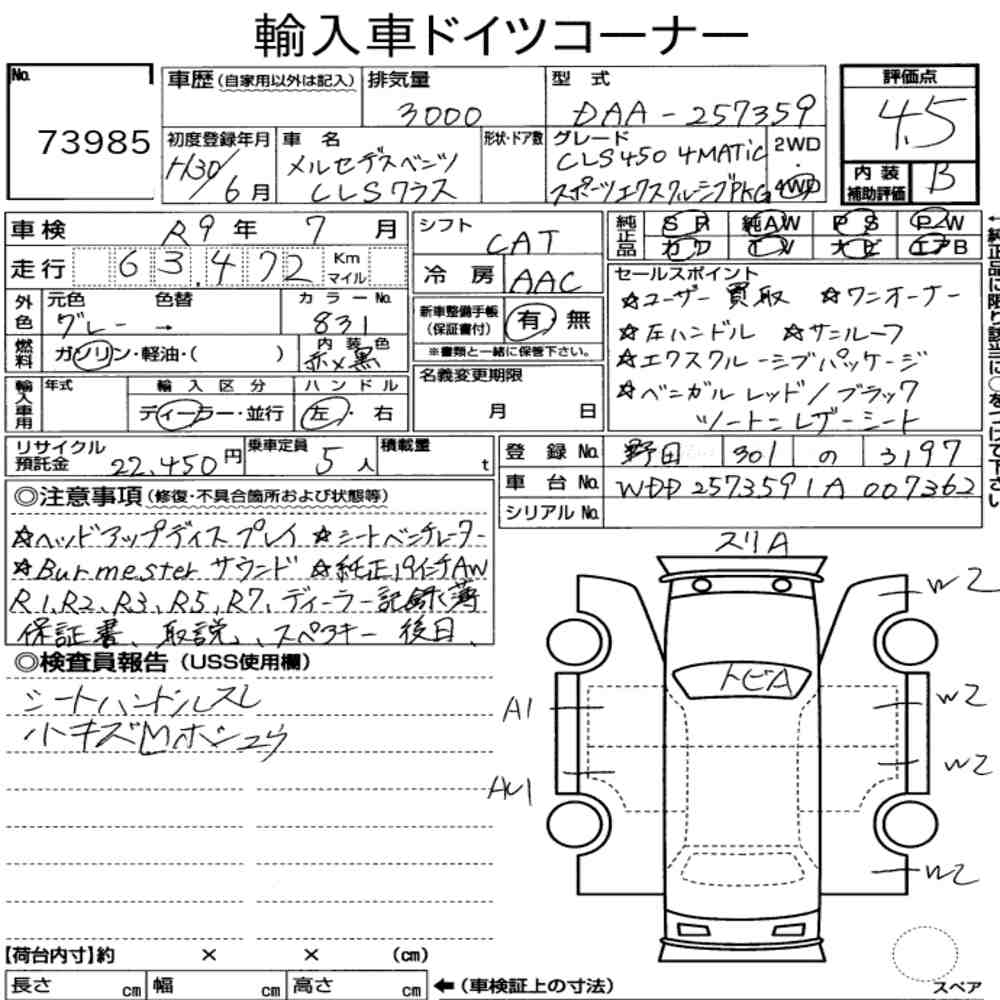 輸入車ドイツコーナー
No. 73985
車歴(自家用以外は記入) 排気量 3000 型式 DAA-257359
評価点 4.5
初度登録年月 H30/6月 車名 メルセデスベンツ CLSクラス 形状・ドア数 グレード CLS450 4MATIC スポーツエクスクルーシブPKG 2WD 4WD
内装補助評価 B
車検 R9年 7月 シフト CAT
純正品 SR 純AW PS PW
カワ TV ナビ エアB
走行 63,472 Km マイル 冷房 AAC
外色 元色 グレー 色替 → カラーNo. 831
新車整備手帳(保証書付) 有 無
※書類と一緒に保管下さい。
燃料 ガソリン・軽油・( ) 内装色 赤×黒
セールスポイント
☆ユーザー買取 ☆ワンオーナー
☆左ハンドル ☆サンルーフ
☆エクスクルーシブパッケージ
☆ベンガルレッド/ブラック
ツートンレザーシート
輸入車用 年式 輸入区分 ディーラー・並行 ハンドル 左・右
名義変更期限 月 日
リサイクル預託金 22,450円 乗車定員 5人 積載量 t
登録No. 野田 301 の 3197
車台No. WDD2573591A007362
シリアルNo.
◎注意事項(修復・不具合箇所および状態等)
☆ヘッドアップディスプレイ ☆シートベンチレーター
☆Burmesterサウンド ☆純正19インチAW
R1、R2、R3、R5、R7、ディーラー記録簿
保証書、取説、スペアキー後日、
◎検査員報告(USS使用欄)
シートハンドルスレ
小キズ
スリA
トビA
A1
W2
W2
W2
W2
【荷台内寸】約 × × (cm)
長さ cm 幅 cm 高さ cm ←(車検証上の寸法)
スペア